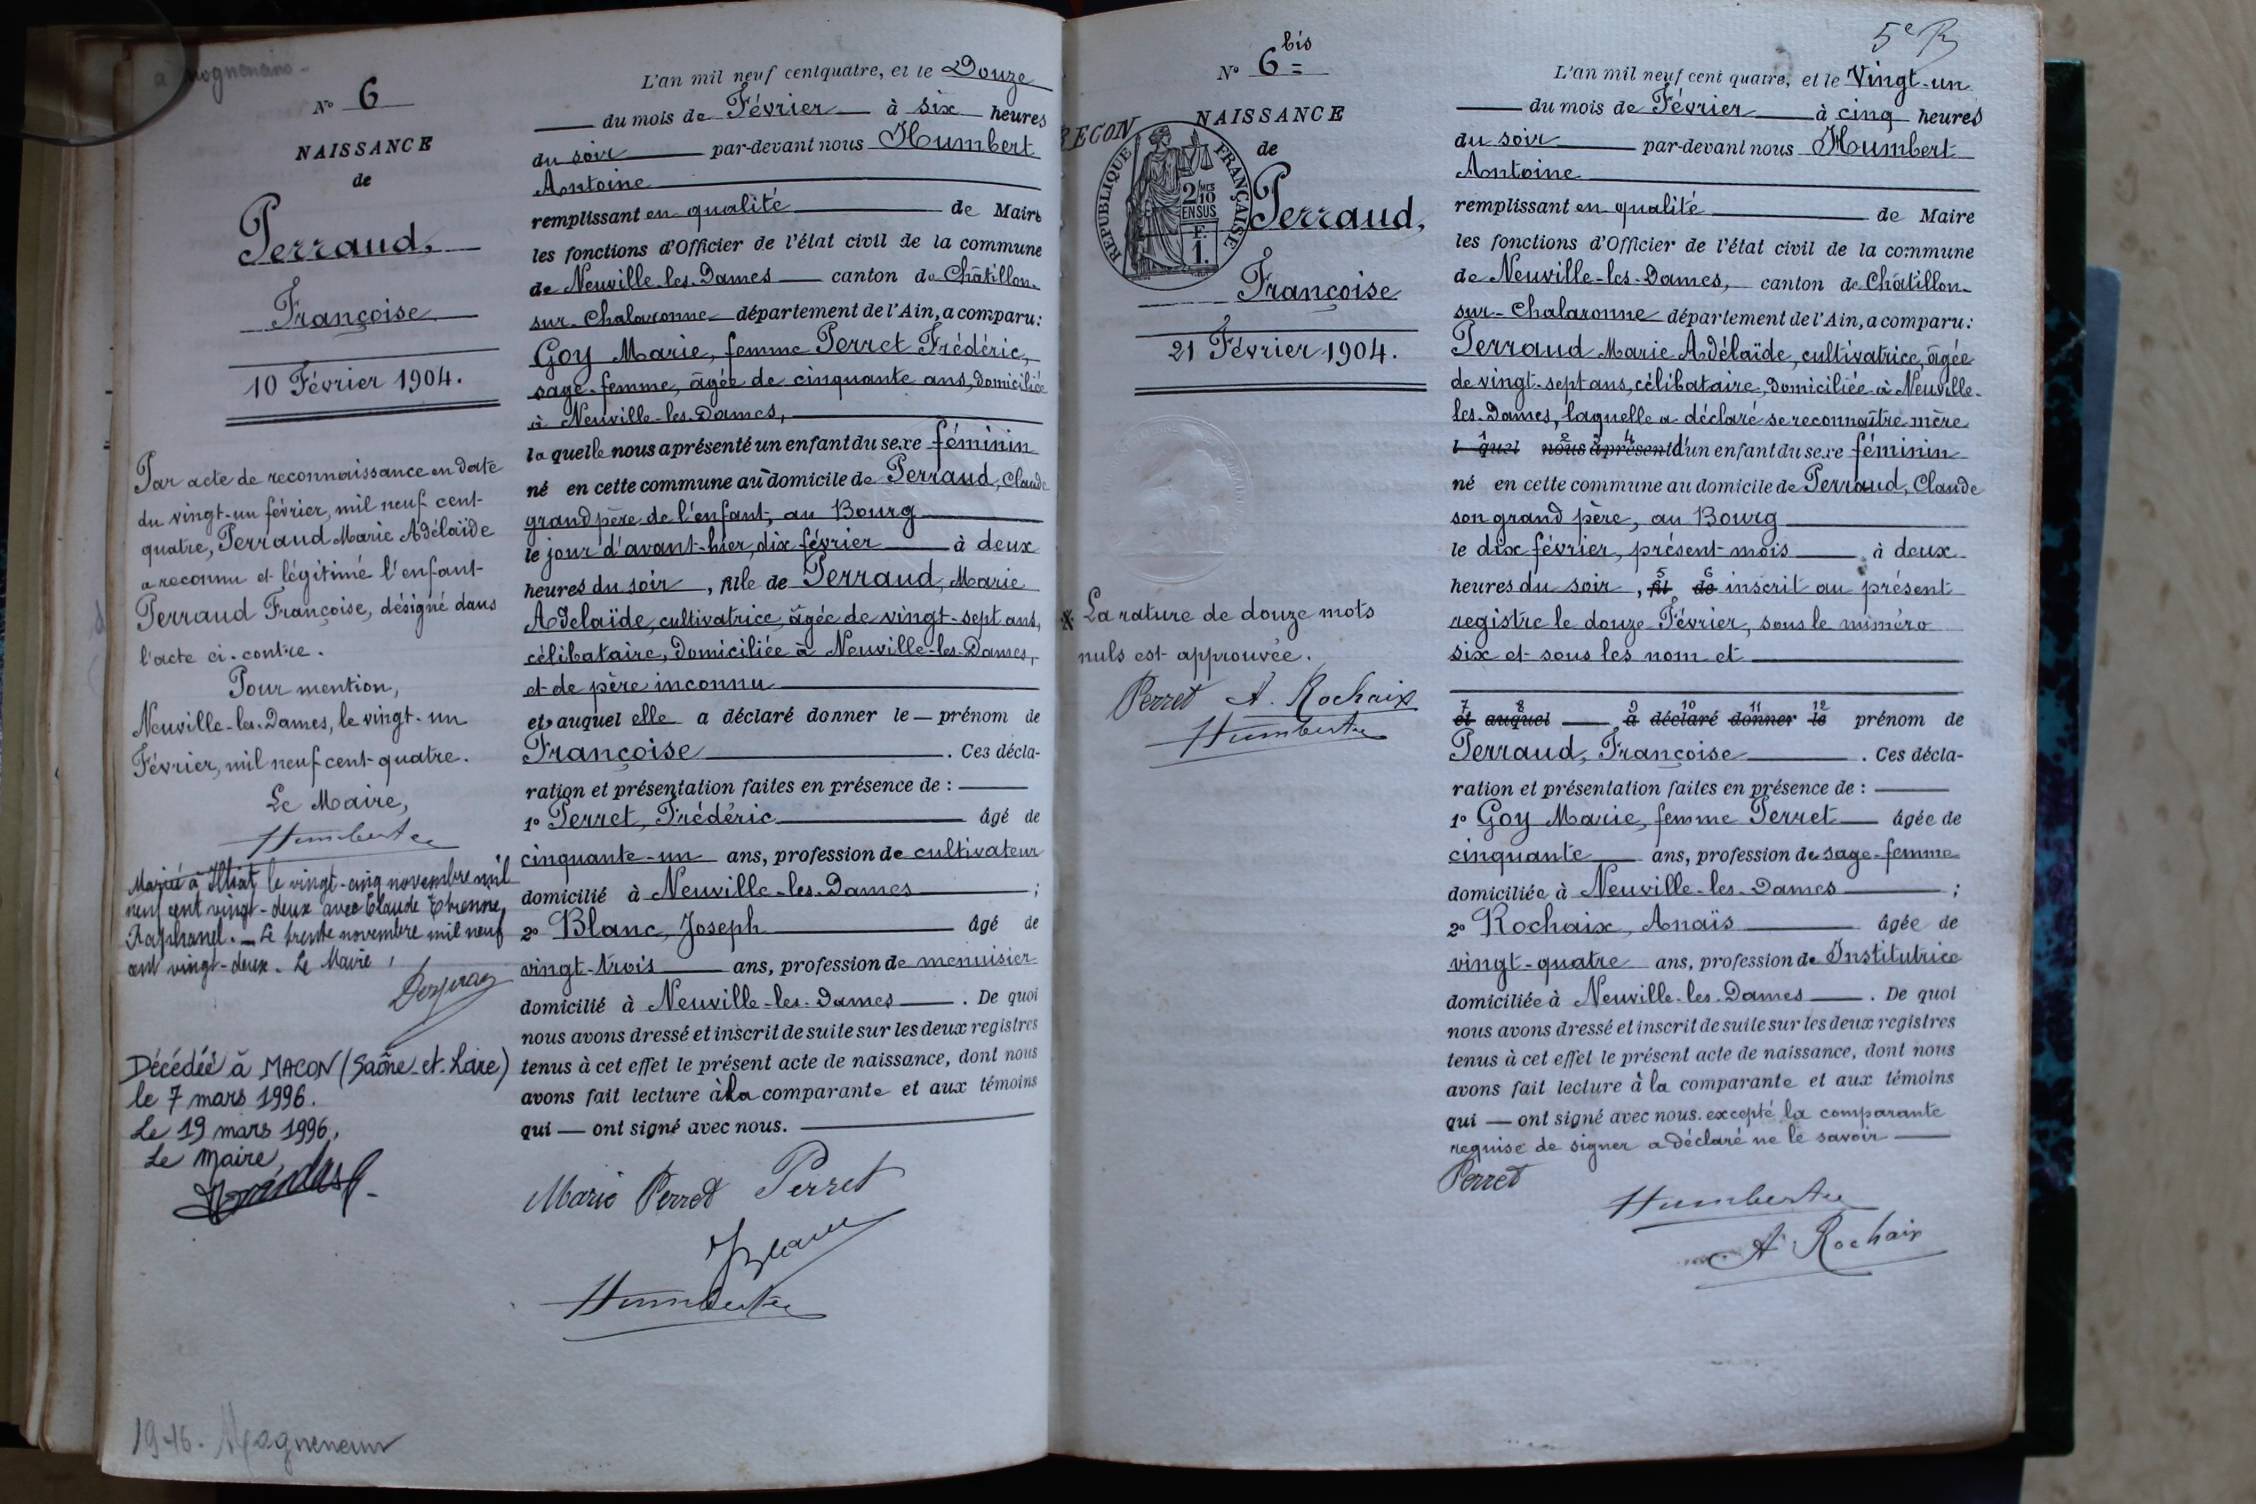 à mognenans -
N° 6
NAISSANCE
de
Perraud,
Françoise
10 Février 1904.
Par acte de reconnaissance en date
du vingt-un février, mil neuf cent-
quatre, Perraud Marie Adélaïde
a reconnu et légitimé l'enfant-
Perraud Françoise, désigné dans
l'acte ci-contre.
Pour mention,
Neuville-les-Dames, le vingt-un
Février, mil neuf cent-quatre.
Le Maire,
Humbert
Mariée à Illiat le vingt-cinq novembre mil
neuf cent vingt-deux avec Claude Etienne
Raphanel. — Le trente novembre mil neuf
cent vingt-deux. Le Maire,
Décédée à MACON (Saône-et-Loire)
le 7 mars 1996.
Le 19 mars 1996,
Le Maire,
L'an mil neuf cent quatre, et le Douze
du mois de Février à six heures
du soir par-devant nous Humbert
Antoine
remplissant en qualité de Maire
les fonctions d'Officier de l'état civil de la commune
de Neuville-les-Dames canton de Châtillon-
sur-Chalaronne département de l'Ain, a comparu:
Goy Marie, femme Perret Frédéric,
sage-femme, âgée de cinquante ans, domiciliée
à Neuville-les-Dames,
la quelle nous a présenté un enfant du sexe féminin
né en cette commune au domicile de Perraud, Claude
grand père de l'enfant, au Bourg
le jour d'avant-hier, dix février à deux
heures du soir, fille de Perraud, Marie
Adelaïde, cultivatrice, âgée de vingt-sept ans,
célibataire, domiciliée à Neuville-les-Dames,
et de père inconnu
et auquel elle a déclaré donner le — prénom de
Françoise . Ces décla-
ration et présentation faites en présence de :
1° Perret, Frédéric âgé de
cinquante-un ans, profession de cultivateur
domicilié à Neuville-les-Dames ;
2° Blanc, Joseph âgé de
vingt-trois ans, profession de menuisier
domicilié à Neuville-les-Dames . De quoi
nous avons dressé et inscrit de suite sur les deux registres
tenus à cet effet le présent acte de naissance, dont nous
avons fait lecture à la comparante et aux témoins
qui — ont signé avec nous.
Marie Perret Perret
Blanc
Humbert
19-16.
5e R
N° 6 bis
NAISSANCE
RECON
de
RÉPUBLIQUE FRANÇAISE
2/10 MES
EN SUS
F.
1.
Perraud,
Françoise
21 Février 1904.
X La rature de douze mots
nuls est approuvée.
Perret A. Rochaix
Humbert
L'an mil neuf cent quatre, et le Vingt-un
du mois de Février à cinq heures
du soir par-devant nous Humbert
Antoine
remplissant en qualité de Maire
les fonctions d'Officier de l'état civil de la commune
de Neuville-les-Dames, canton de Châtillon-
sur-Chalaronne département de l'Ain, a comparu:
Perraud Marie Adélaïde, cultivatrice, âgée
de vingt-sept ans, célibataire, domiciliée à Neuville-
les-Dames, laquelle a déclaré se reconnaître mère
1 2 3 4
l quel nous a présent d'un enfant du sexe féminin
né en cette commune au domicile de Perraud, Claude
son grand père, au Bourg
le dix février, présent mois à deux
5 6
heures du soir, fil de inscrit au présent
registre le douze Février, sous le numéro
six et sous les nom et
7 8 9 10 11 12
et auquel a déclaré donner le prénom de
Perraud, Françoise . Ces décla-
ration et présentation faites en présence de :
1° Goy Marie, femme Perret âgée de
cinquante ans, profession de sage-femme
domiciliée à Neuville-les-Dames ;
2° Rochaix, Anaïs âgée de
vingt-quatre ans, profession de Institutrice
domiciliée à Neuville-les-Dames . De quoi
nous avons dressé et inscrit de suite sur les deux registres
tenus à cet effet le présent acte de naissance, dont nous
avons fait lecture à la comparante et aux témoins
qui — ont signé avec nous. excepté la comparante
requise de signer a déclaré ne le savoir
Perret
Humbert
A Rochaix